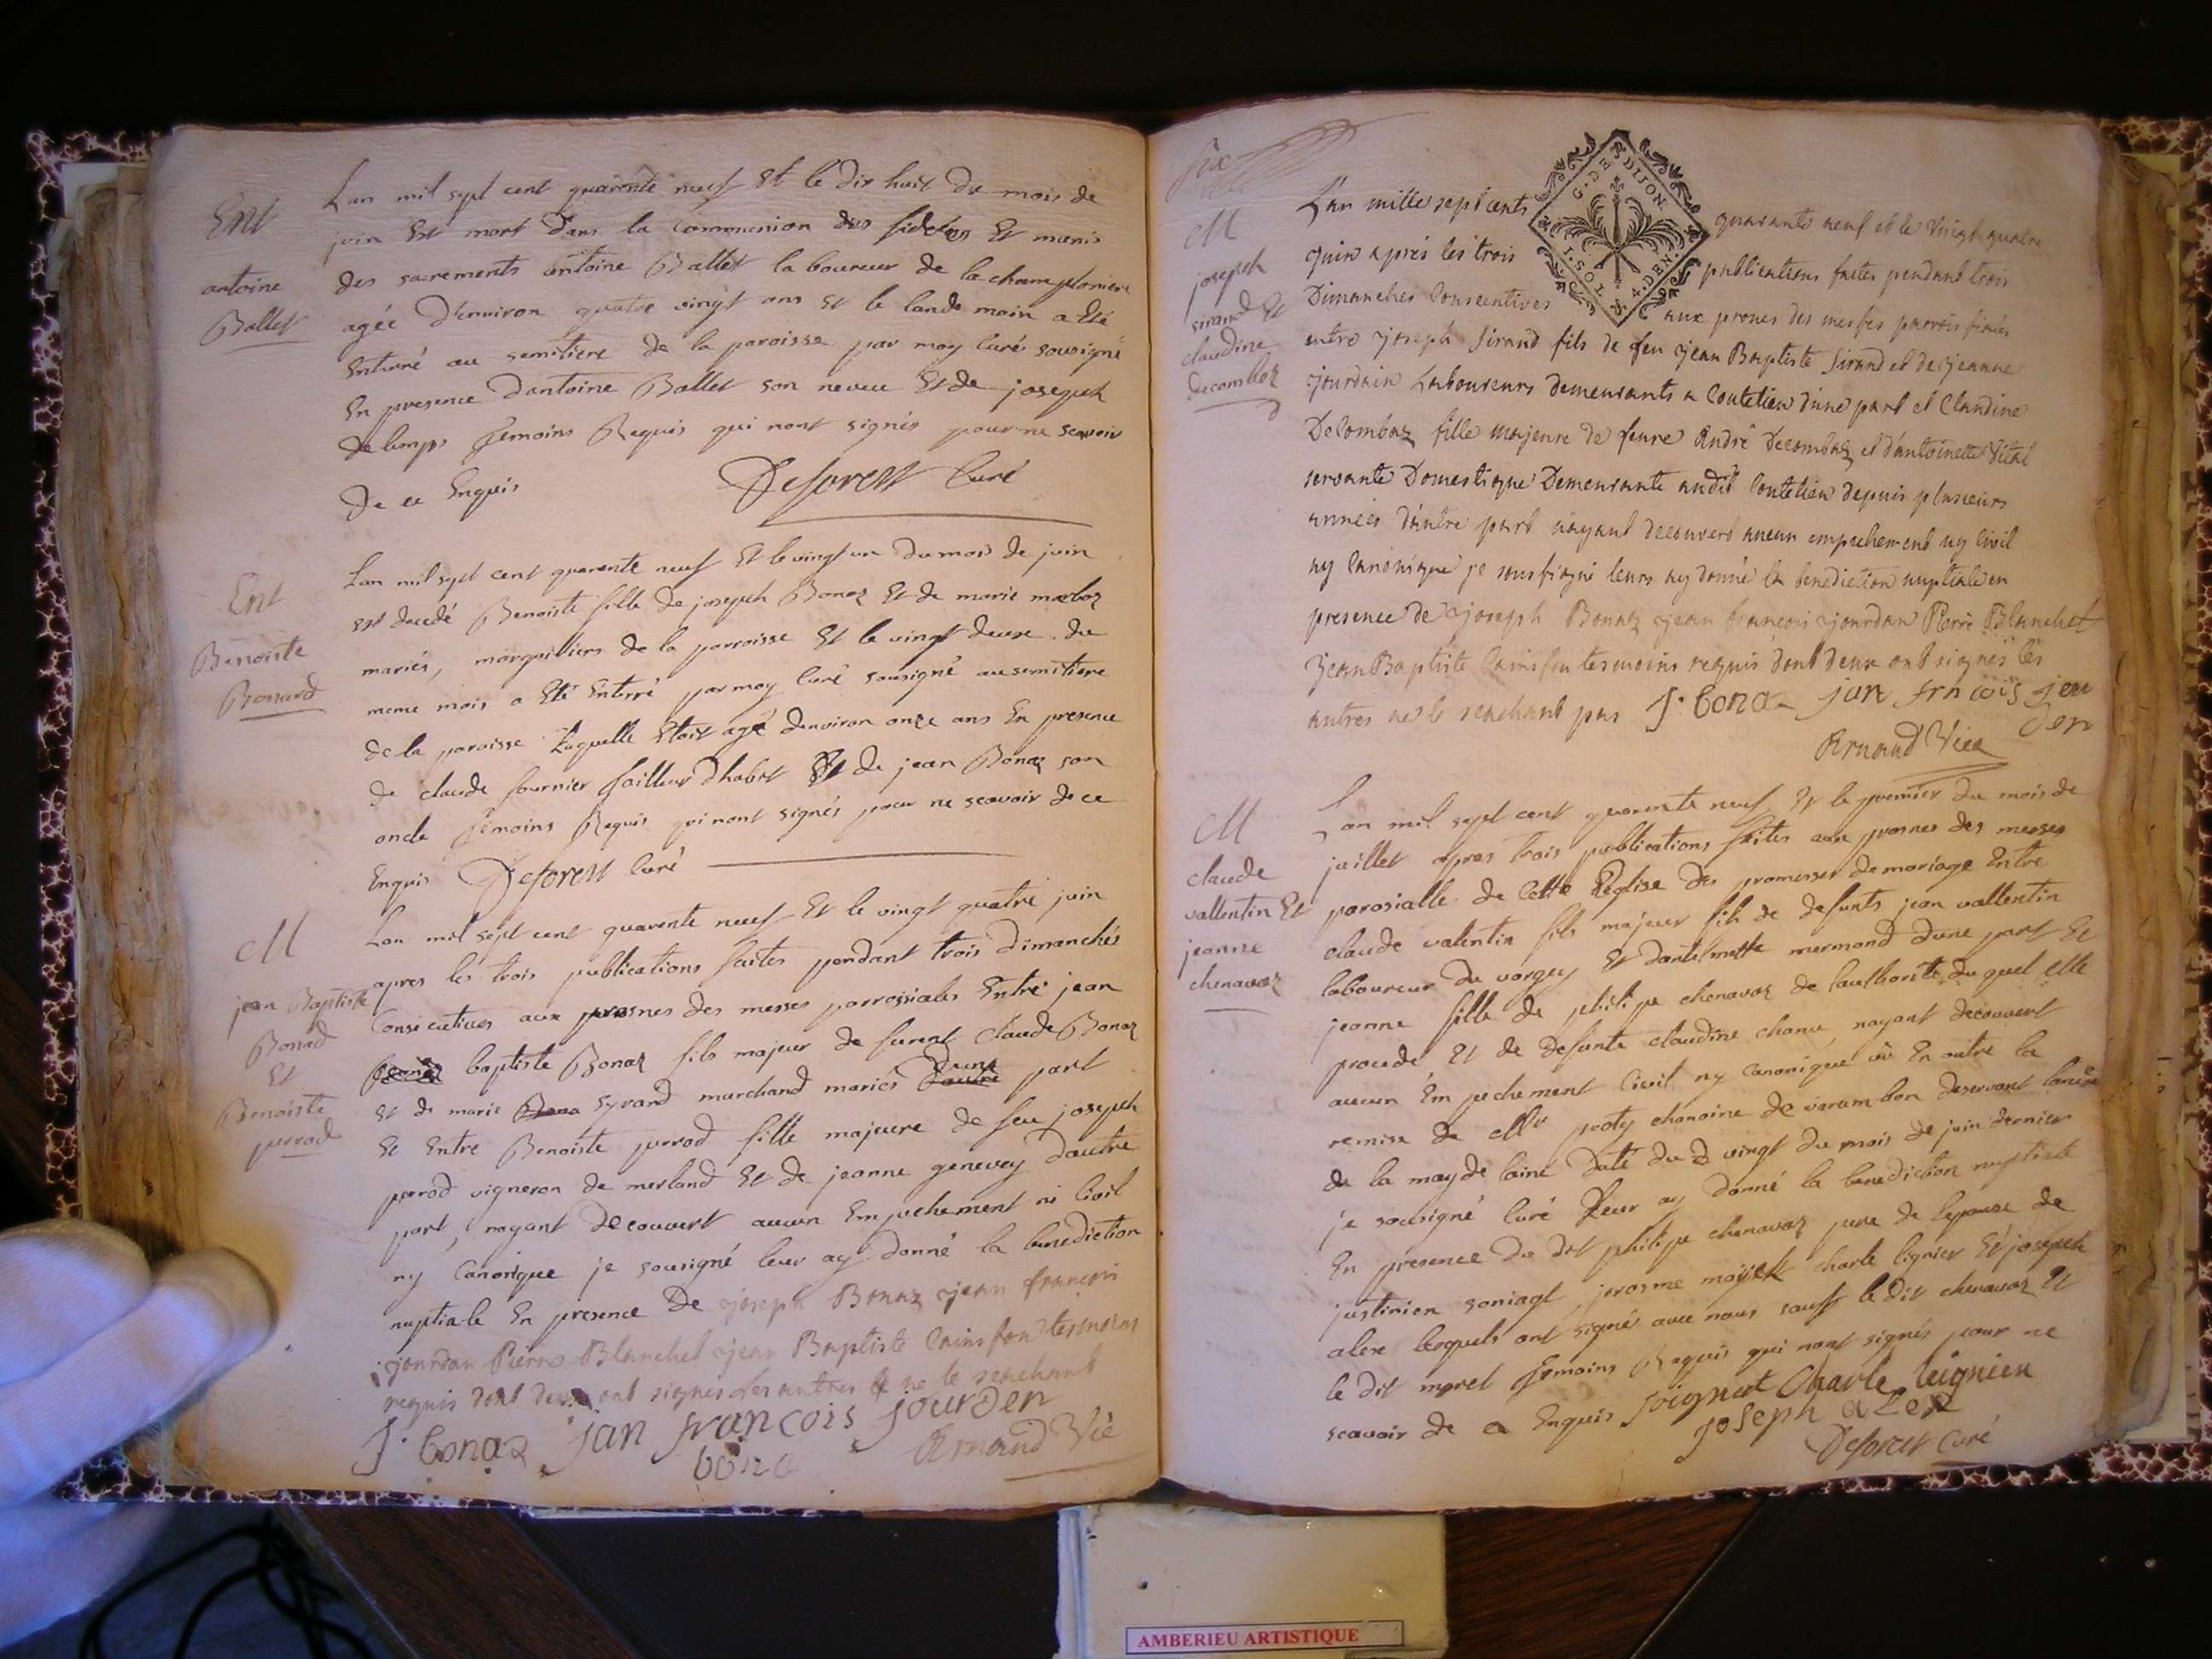 Ent
antoine
Ballet
Lan mil sept cent quarente neuf Et le dix huit du mois de
juin Est mort dans la communion des fideles Et munis
des sacrements antoine Ballet laboureur de la champloniere
agée d'environ quatre vingt ans Et le lande main a Eté
Enterré au semitiere de la paroisse par moy Curé sousigné
En presence dantoine Ballet son neveu Et de joseph
delomps témoins Requis qui nont signés pour ne scavoir
De ce Enquis Deforest Curé
Ent
Benoiste
Bonard
Lan mil sept cent quarente neuf Et le vingt un du mois de juin
est decedé Benoiste fille de joseph Bonaz Et de marie
mariés, marguilliers de la parroisse Et le vingt deuxe du
meme mois a Eté Enterré par moy Curé sousigné au semitiere
de la paroisse laquelle Etoit agé denviron onze ans En presence
de claude fournier tailleur dhabit Et de jean Bonaz son
oncle témoins Requis qui nont signés pour ne scavoir de ce
Enquis Deforest Curé
M
jean Baptiste
Bonad
Et
Benoiste
perrod
Lan mil sept cent quarente neuf Et le vingt quatre juin
apres les trois publications faites pendant trois dimanches
Consecutives aux prosnes des messes parrossiales Entre jean
baptiste Bonaz fils majeur de furent Claude Bonaz
et de marie Syrand marchand mariés dune part
Et Entre Benoiste perrod fille majeure de feu joseph
perrod vigneron de merland Et de jeanne genevey dautre
part, nayant decouvert aucun Empechement ni Civil
ny Canonique je sousigné leur ay donné la benediction
nuptiale En presence De joseph Bonaz jean francois
jourdan Pierre Blanchet jean Baptiste Cainsfon tesmoins
requis dont deux ont signés Les autres ne le seachant
J. bonaz jan francois jourden
bona Arnaud Vic
six
M
joseph
sirand Et
claudine
decombaz
G. DE DIJON
1. SOL. 4. DEN.
L'an mille sept cents quarante neuf et le vingt quatre
juin aprés les trois publications faites pendant trois
Dimanches Consecutives aux prones des messes parroissiales
entre joseph Sirand fils de feu jean Baptiste Sirand et de jeanne
jourdain Laboureurs demeurants a Coutelieu d'une part et Claudine
Decombaz fille majeure de feu André Decombaz et d'antoinette Vital
servante Domestique Demeurante audit Coutelieu depuis plusieurs
années d'autre part n'ayant decouvert aucun empechement ny Civil
ny Canonique je soussigné leurs ay donné la benediction nuptiale en
presence de joseph Bonaz jean francois jourdan Pierre Blanchet
jean Baptiste Cainsfon tesmoins requis dont deux ont signés les
autres ne le seachant pas J. bonaz jan frncois jou
den
Arnaud Vic
M
claude
vallentin Et
jeanne
chenavaz
Lan mil sept cent quarente neuf Et le premier du mois de
juillet apres trois publications faites aux prosnes des messes
parosialle de Cette Eglise des promesses de mariage Entre
claude valentin fils majeur fils de defunts jean vallentin
laboureur du vorgey Et dantelmette mermond dune part Et
jeanne fille de philipe chenavaz de lauthorité du quel elle
procede Et de defunte claudine chanu, nayant decouvert
aucun Empechement Civil ny Canonique vû En outre la
remise de Mr proty chanoine de varambon deservant
de la daté du vingt du mois de juin dernier
je sousigné Curé Leur ay donné la benediction nuptiale
En presence du dit philipe chenavaz pere de lepouse de
justinien soniagt, jerosme charle lignier Et joseph
alex lesquels ont signés avec nous sauf le dit chenavaz Et
le dit morel témoins Requis qui nont signés pour ne
scavoir de ce Enquis Soigniat Charle leignier
joseph alex
Deforest Curé
AMBERIEU ARTISTIQUE